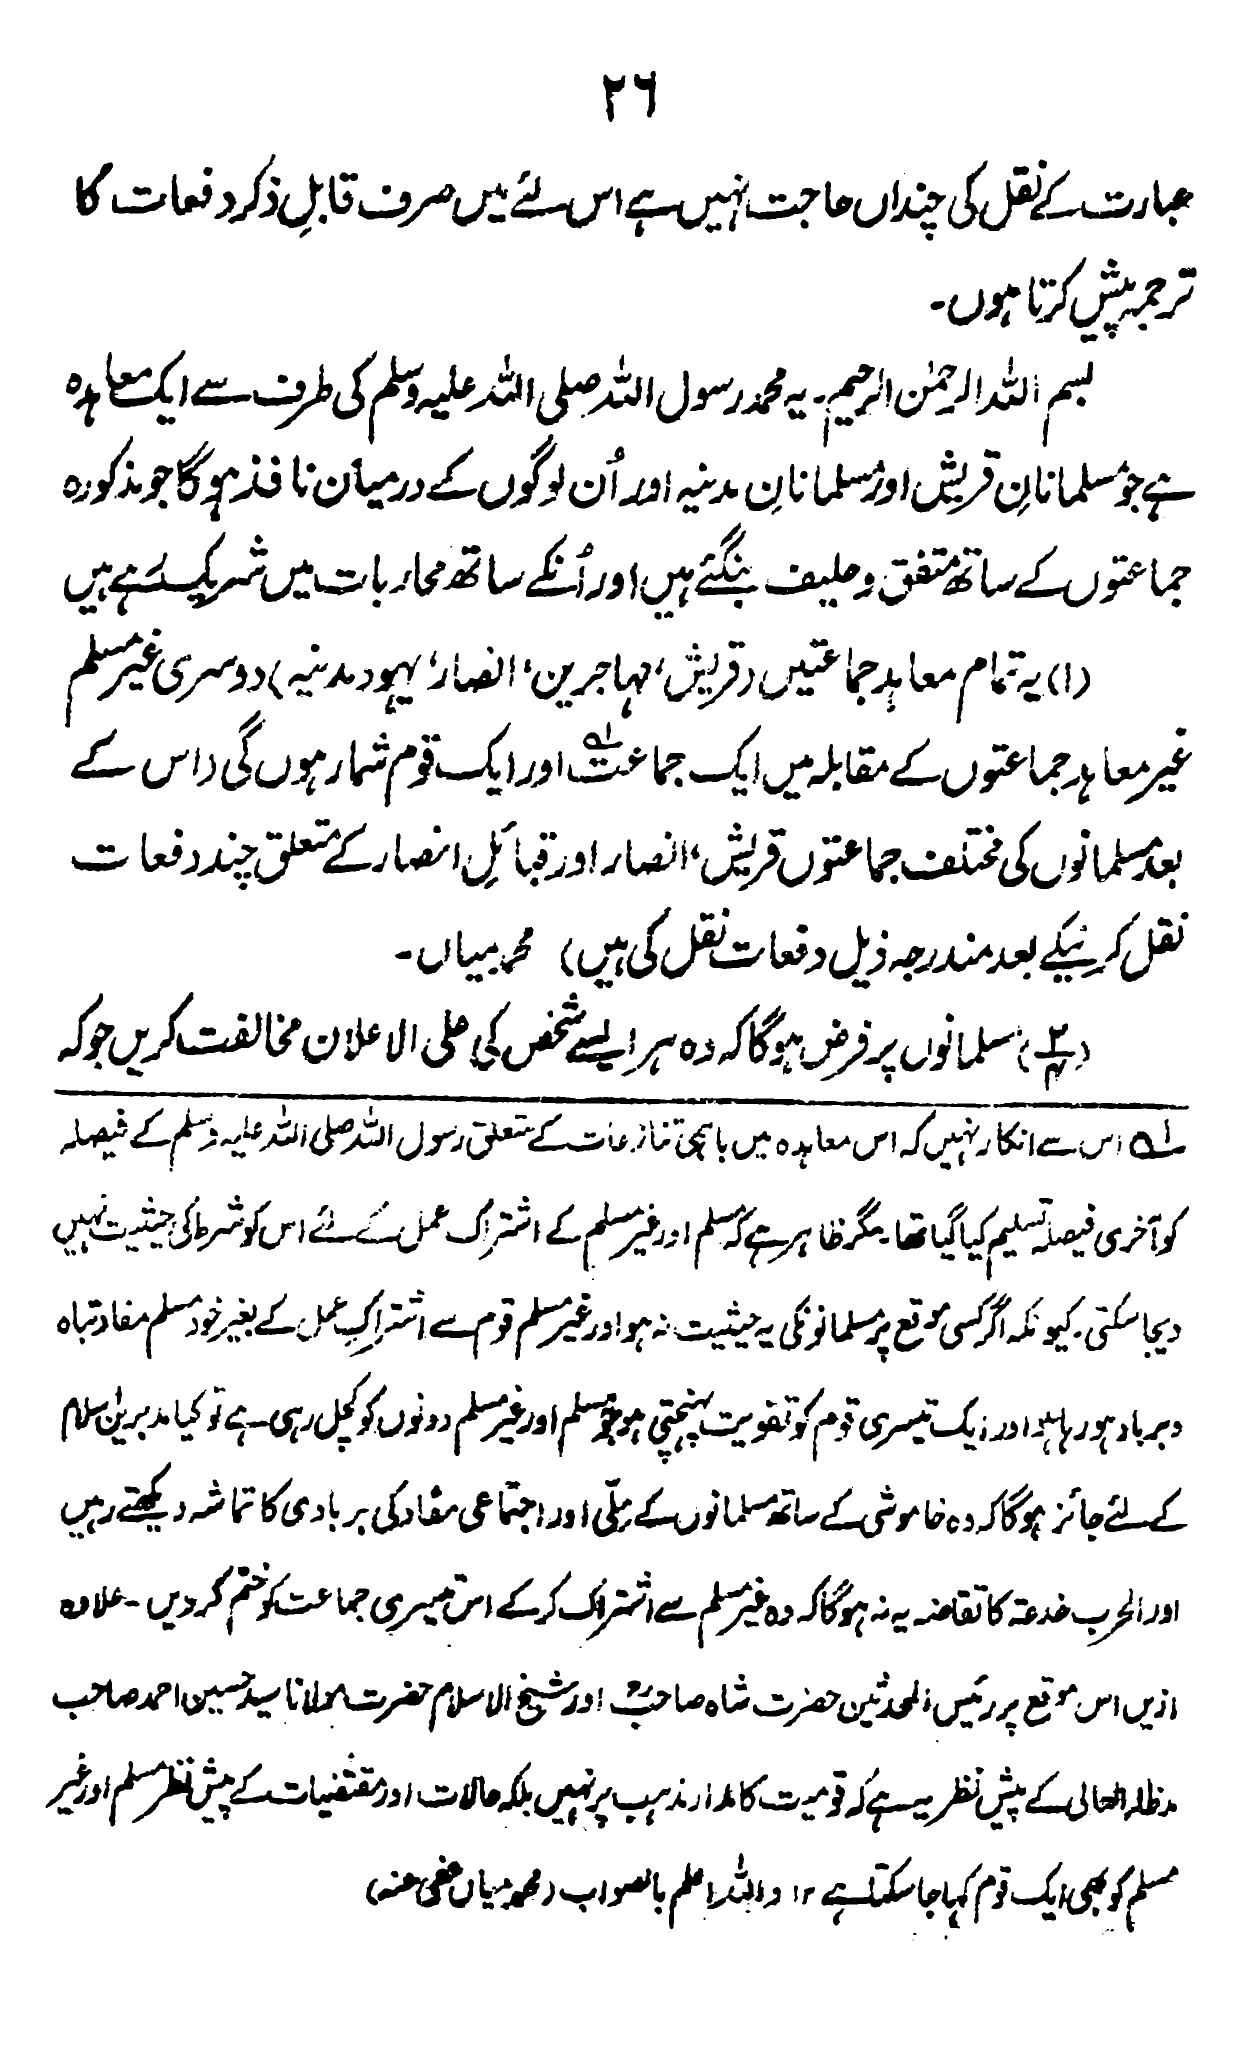 ۲۶
عبارت کے نقل کی چنداں حاجت نہیں ہے اس لئے میں صرف قابلِ ذکر دفعات کا
ترجمہ پیش کرتا ہوں۔
بسم اللہ الرحمٰن الرحیم۔ یہ محمد رسول اللہ صلی اللہ علیہ وسلم کی طرف سے ایک معاہدہ
ہے جو مسلمانانِ قریش اور مسلمانانِ مدنیہ اور اُن لوگوں کے درمیان نافذ ہوگا جو مذکورہ
جماعتوں کے ساتھ متفق و حلیف بنگئے ہیں اور اُنکے ساتھ محاربات میں شریک رہے ہیں
(۱) یہ تمام معاہد جماعتیں (قریش، مہاجرین، انصار، یہود مدنیہ) دوسری غیر مسلم
غیر معاہد جماعتوں کے مقابلہ میں ایک جماعت لہ اور ایک قوم شمار ہوں گی (اس کے
بعد مسلمانوں کی مختلف جماعتوں قریش، انصار اور قبائلِ انصار کے متعلق چند دفعات
نقل کرنیکے بعد مندرجہ ذیل دفعات نقل کی ہیں) محمد میاں۔
(۲/۴) مسلمانوں پر فرض ہوگا کہ وہ ہر ایسے شخص کی علی الاعلان مخالفت کریں جو کہ
لہ اس سے انکار نہیں کہ اس معاہدہ میں باہمی تنازعات کے متعلق رسول اللہ صلی اللہ علیہ وسلم کے فیصلہ
کو آخری فیصلہ تسلیم کیا گیا تھا۔ مگر ظاہر ہے کہ مسلم اور غیر مسلم کے اشتراک عمل کے لئے اس کو شرط کی حیثیت نہیں
دیجا سکتی۔ کیونکہ اگر کسی موقع پر مسلمانونکی یہ حیثیت نہ ہو اور غیر مسلم قوم سے اشتراکِ عمل کے بغیر خود مسلم مفاد تباہ
و برباد ہو رہا ہو اور ایک تیسری قوم کو تقویت پہنچتی ہو جو مسلم اور غیر مسلم دونوں کو کچل رہی ہے تو کیا مدبرین اسلام
کے لئے جائز ہوگا کہ وہ خاموشی کے ساتھ مسلمانوں کے ملّی اور اجتماعی مفاد کی بربادی کا تماشہ دیکھتے رہیں
اور الحرب خدعۃ کا تقاضہ یہ نہ ہوگا کہ وہ غیر مسلم سے اشتراک کر کے اس تیسری جماعت کو ختم کر دیں۔ علاوہ
ازیں اس موقع پر رئیس المحدثین حضرت شاہ صاحبؒ اور شیخ الاسلام حضرت مولانا سید حسین احمد صاحب
مدظلہ العالی کے پیش نظر یہ ہے کہ قومیت کا مدار مذہب پر نہیں بلکہ حالات اور مقتضیات کے پیش نظر مسلم اور غیر
مسلم کو بھی ایک قوم کہا جا سکتا ہے ۱۲ واللہ اعلم بالصواب (محمد میاں عفی عنہ)